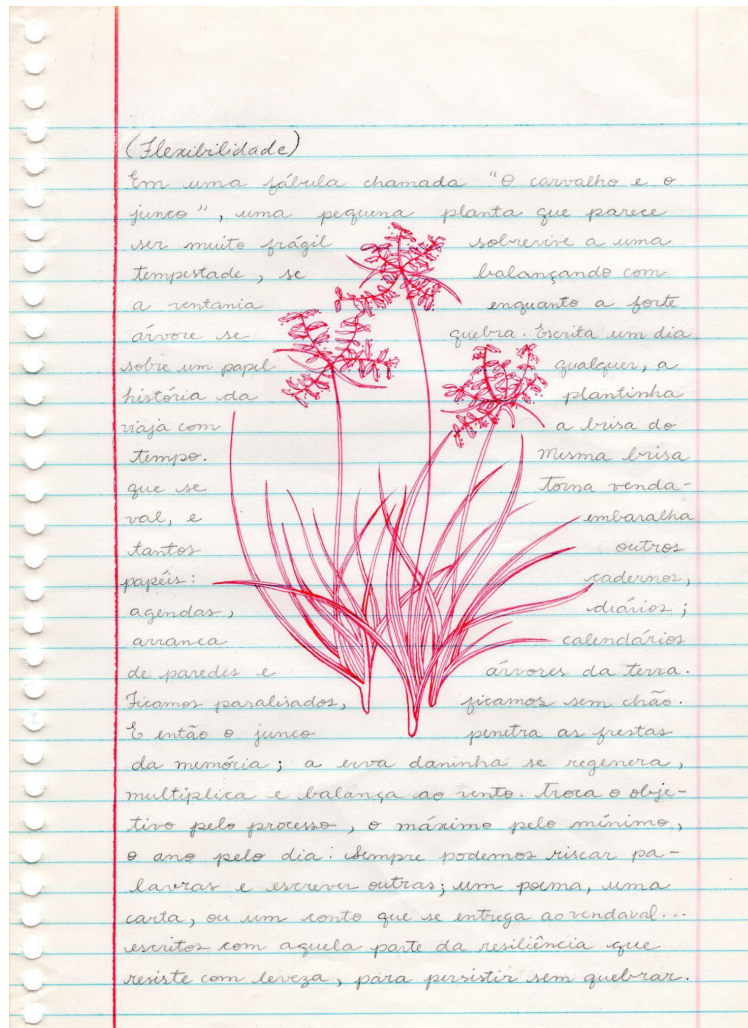 (Flexibilidade)
Em uma fábula chamada "O carvalho e o
junco", uma pequena planta que parece
ser muito frágil sobrevive a uma
tempestade, se balançando com
a ventania enquanto a forte
árvore se quebra. Escrita um dia
sobre um papel qualquer, a
história da plantinha
viaja com a brisa do
tempo. Mesma brisa
que se torna venda-
val, e embaralha
tantos outros
papéis: cadernos,
agendas, diários;
arranca calendários
de paredes e árvores da terra.
Ficamos paralisados, ficamos sem chão.
E então o junco penetra as frestas
da memória; a erva daninha se regenera,
multiplica e balança ao vento. Troca o obje-
tivo pelo processo, o máximo pelo mínimo,
o ano pelo dia: Sempre podemos riscar pa-
lavras e escrever outras; um poema, uma
carta, ou um conto que se entrega ao vendaval...
escritos com aquela parte da resiliência que
resiste com leveza, para persistir sem quebrar.